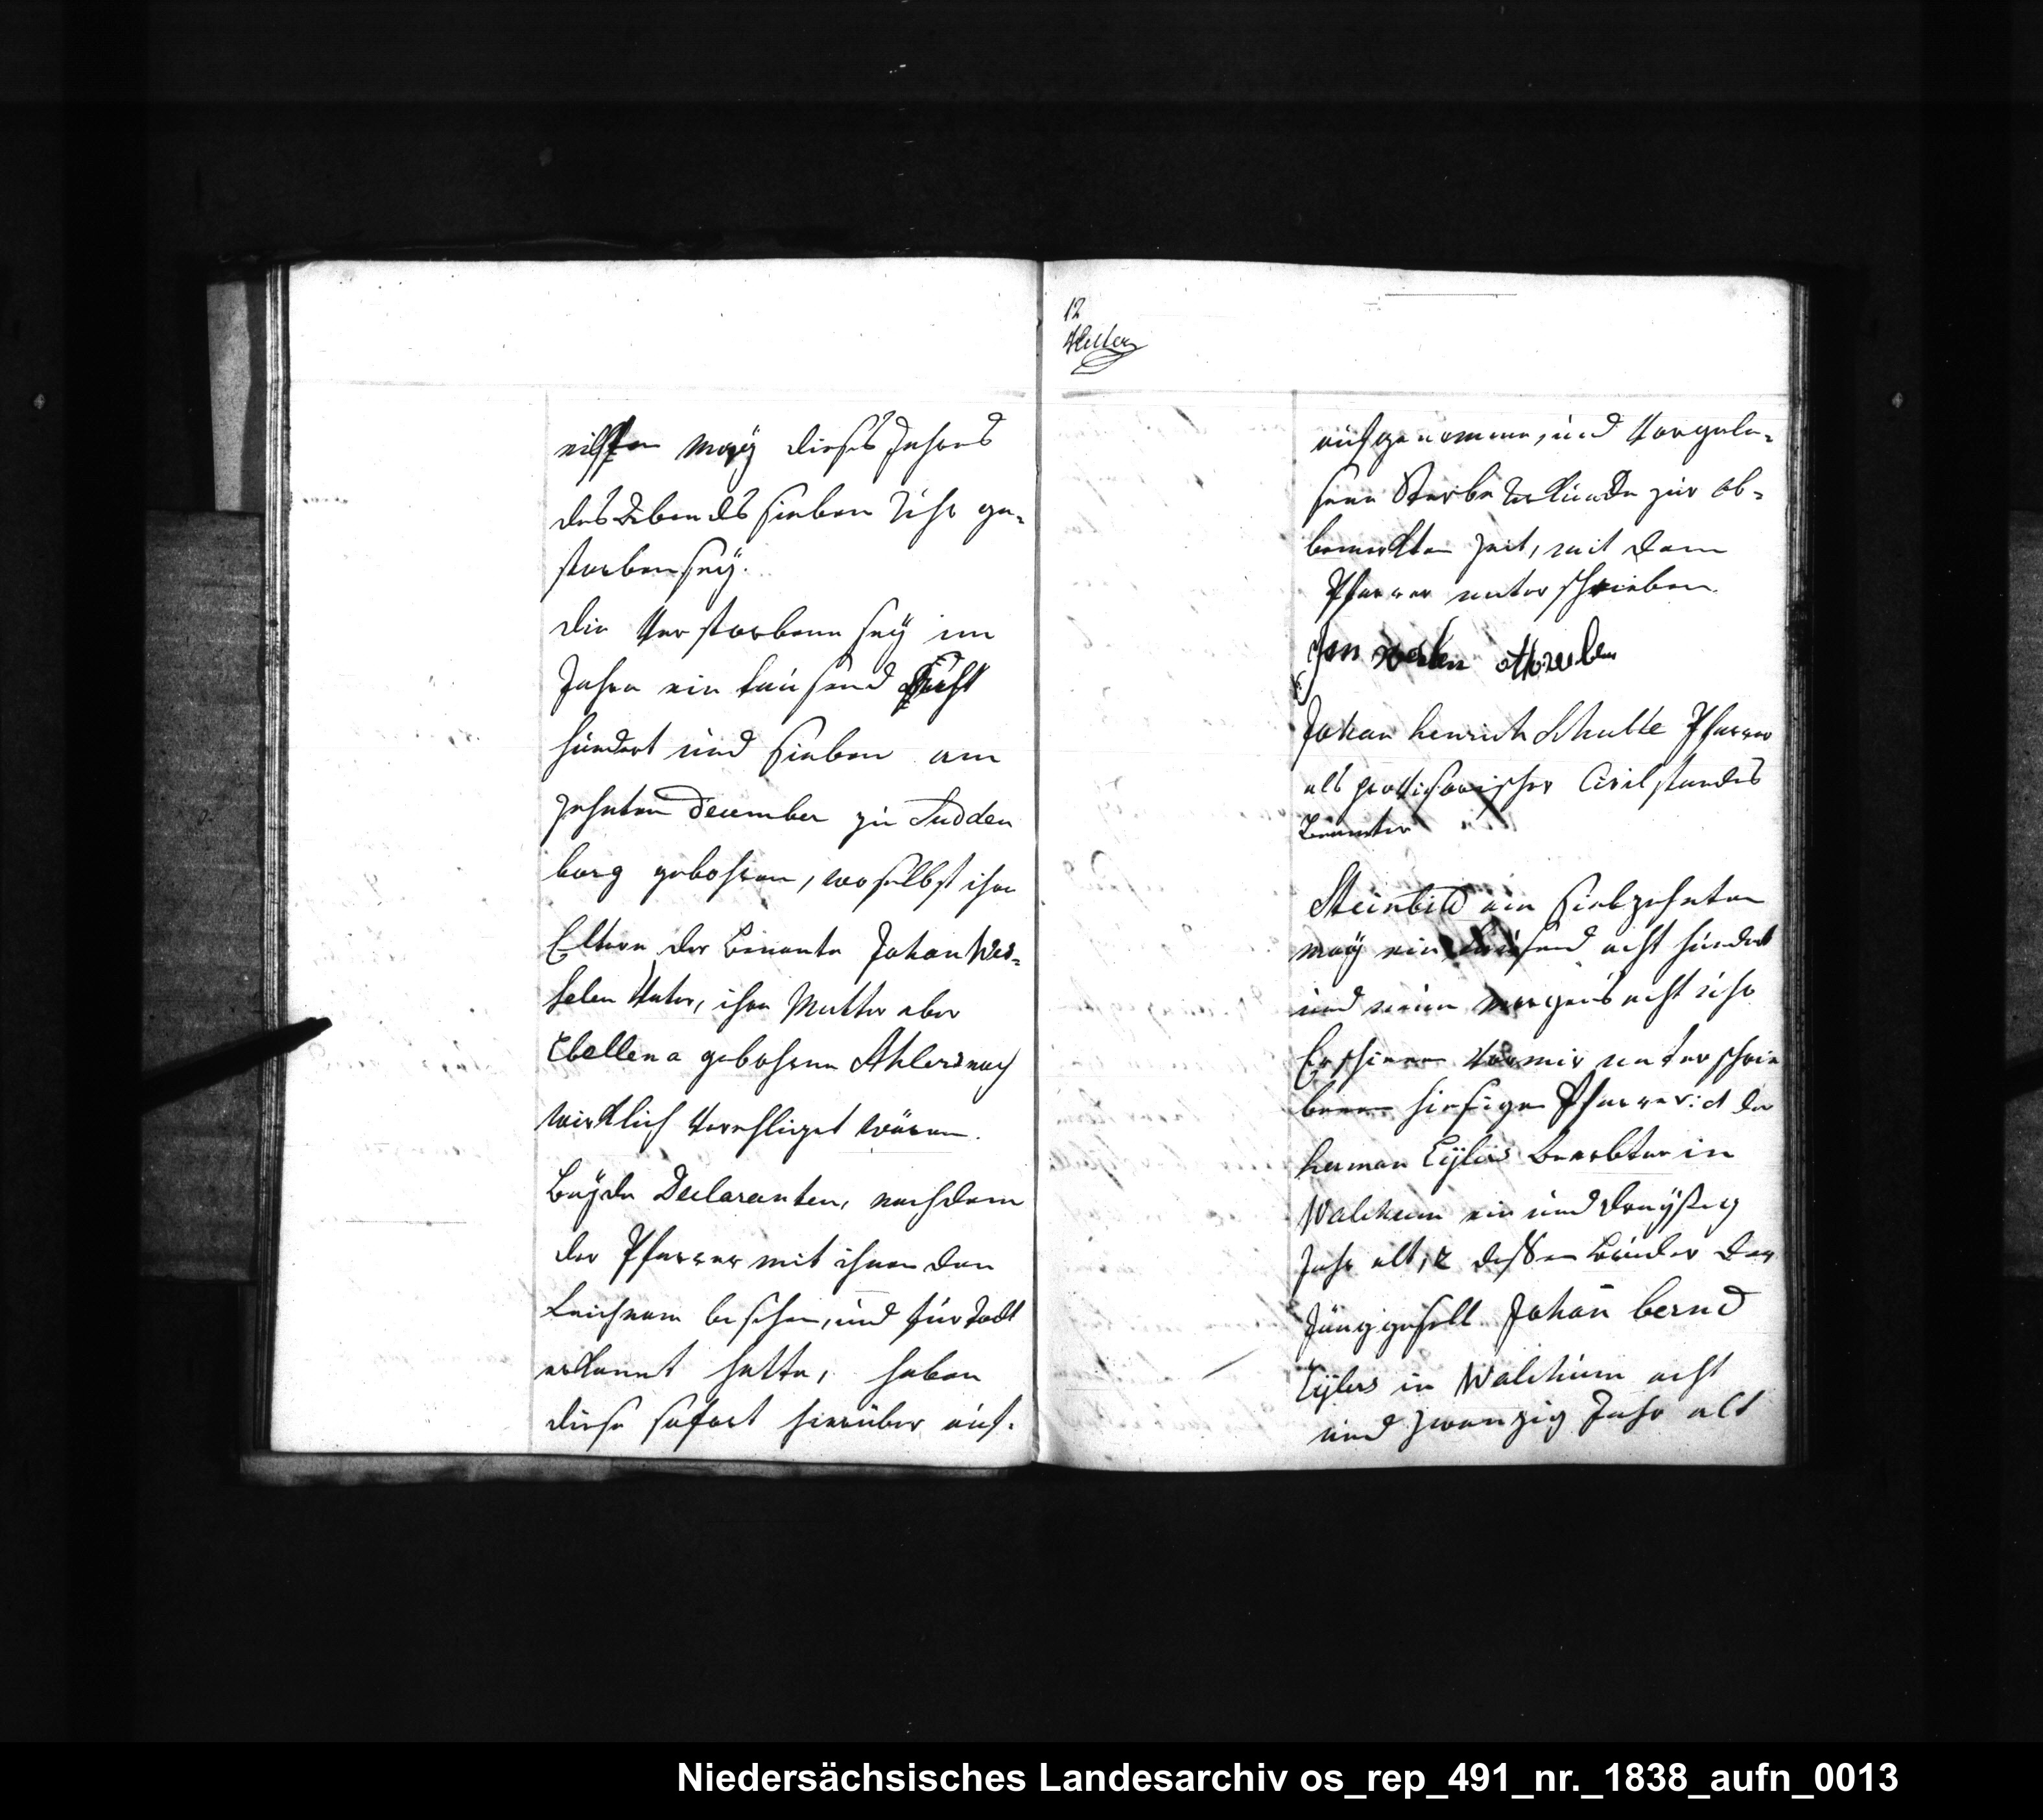 eilften May dieses Jahres
des Abends sieben Uhr ge=
storben sey.
die Verstorbene sey im
Jahre ein tausend acht
hundert und sieben am
zehnten December zu Sudden
borg gebohren, woselbst ihre
Eltern der Beerbte Johan Wes=
selen Vater, ihre Mutter aber
Thellena gebohrne Ahlers noch
wirklich verehliget wären.
Beyde Declaranten, nachdem
der Pfarrer mit ihnen den
Leichnam besehen, und für todt
erkannt hatte, haben
diese sofort hierüber auf=
12
aufgenommene, und Vorgele=
sene Sterbe Urkunde zur ob=
bemerkten Zeit, mit dem
Pfarrer unterschrieben
Jan
Johan henrich Schulte Pfarrer
als provisorischer Civilstandes
Beamter
Steinbild am siebzehnten
may ein tausend acht hundert
und neun morgens acht uhr
Erschienen vor mir unterschrie
benen hiesigen Pfarrer: der
herman Eylers Beerbter in
Walchum ein und dreyßig
Jahr alt, 2 dessen Bruder der
Junggesell Johan bernd
Eylers in Walchum acht
und zwanzig Jahr alt
Niedersächsisches Landesarchiv os_rep_491_nr._1838_aufn_0013